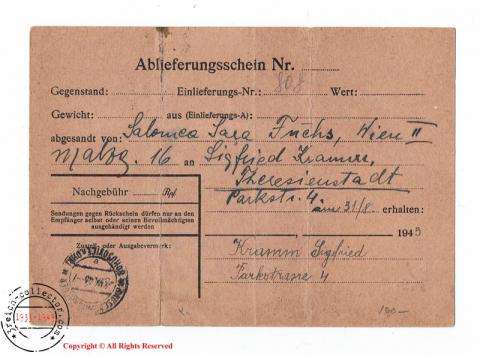 Ablieferungsschein Nr.
Gegenstand: Einlieferungs-Nr.: 808 Wert:
Gewicht: aus (Einlieferungs-A):
abgesandt von: Salomea Sara Fuchs, Wien II
16 an Sigfried
Theresienstadt
Parkstr. 4
31/8 erhalten:
Nachgebühr Rpf
Sendungen gegen Rückschein dürfen nur an den
Empfänger selbst oder seinen Bevollmächtigten
ausgehändigt werden
194
Zustell- oder Ausgabevermerk:
Kramm Sigfried
Parkstrasse 4
100-
3reich-collector.com
1933-1945
Copyright © All Rights Reserved